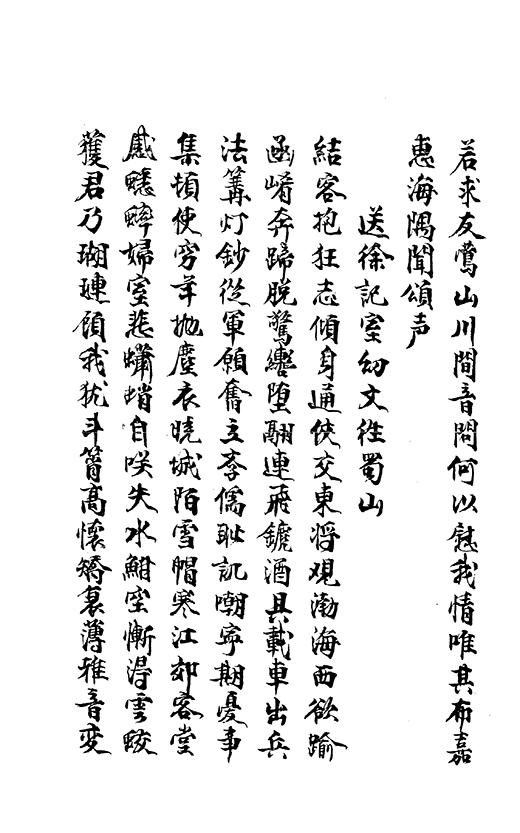 若求友鶯山川間音問何以慰我情唯其布嘉
惠海隅聞頌声
送徐記室幼文往蜀山
結客抱狂志傾身通侠交東将观渤海西欲踰
函崤奔蹄脱驚轡堕翮連飛鑣酒具載車出兵
法篝灯鈔從軍願奮立孝儒耻訊嘲寧期憂事
集頓使穷年抛塵衣曉城陌雪帽寒江郊客堂
感蟋蟀婦室悲蠨蛸自咲失水鮒空慚得雲蛟
獲君乃瑚璉顧我犹斗筲高懷矯衰薄雅音変